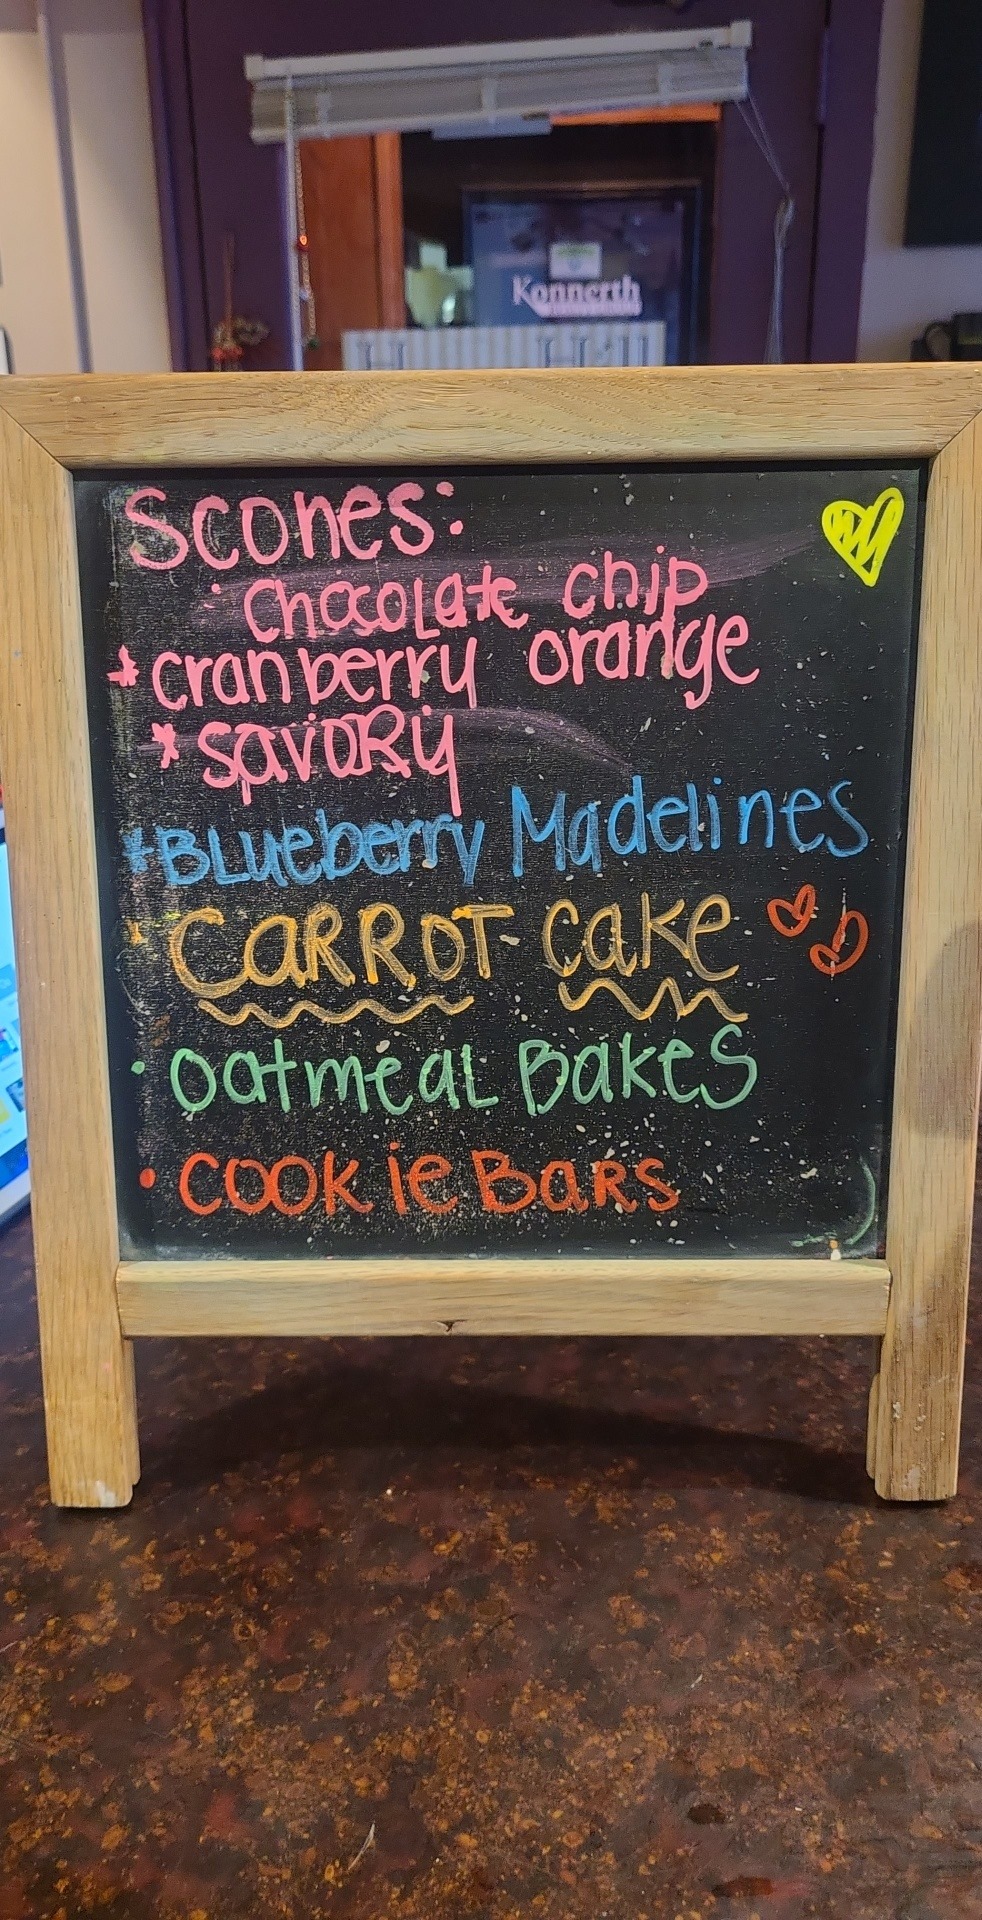 Konnerth
Scones:
· Chocolate chip
* cranberry orange
* savory
* Blueberry Madelines
· Carrot cake
· Oatmeal Bakes
· Cookie Bars